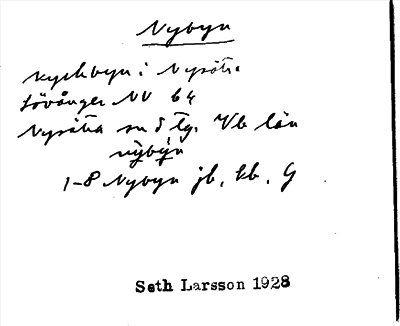 Nybyn
Kyrkbyn i Nysätra
Lövånger NV 64
Nysätra sn o tg. Vb län
nỳbýn
1-8 Nybyn jb, kb, G
Seth Larsson 1928